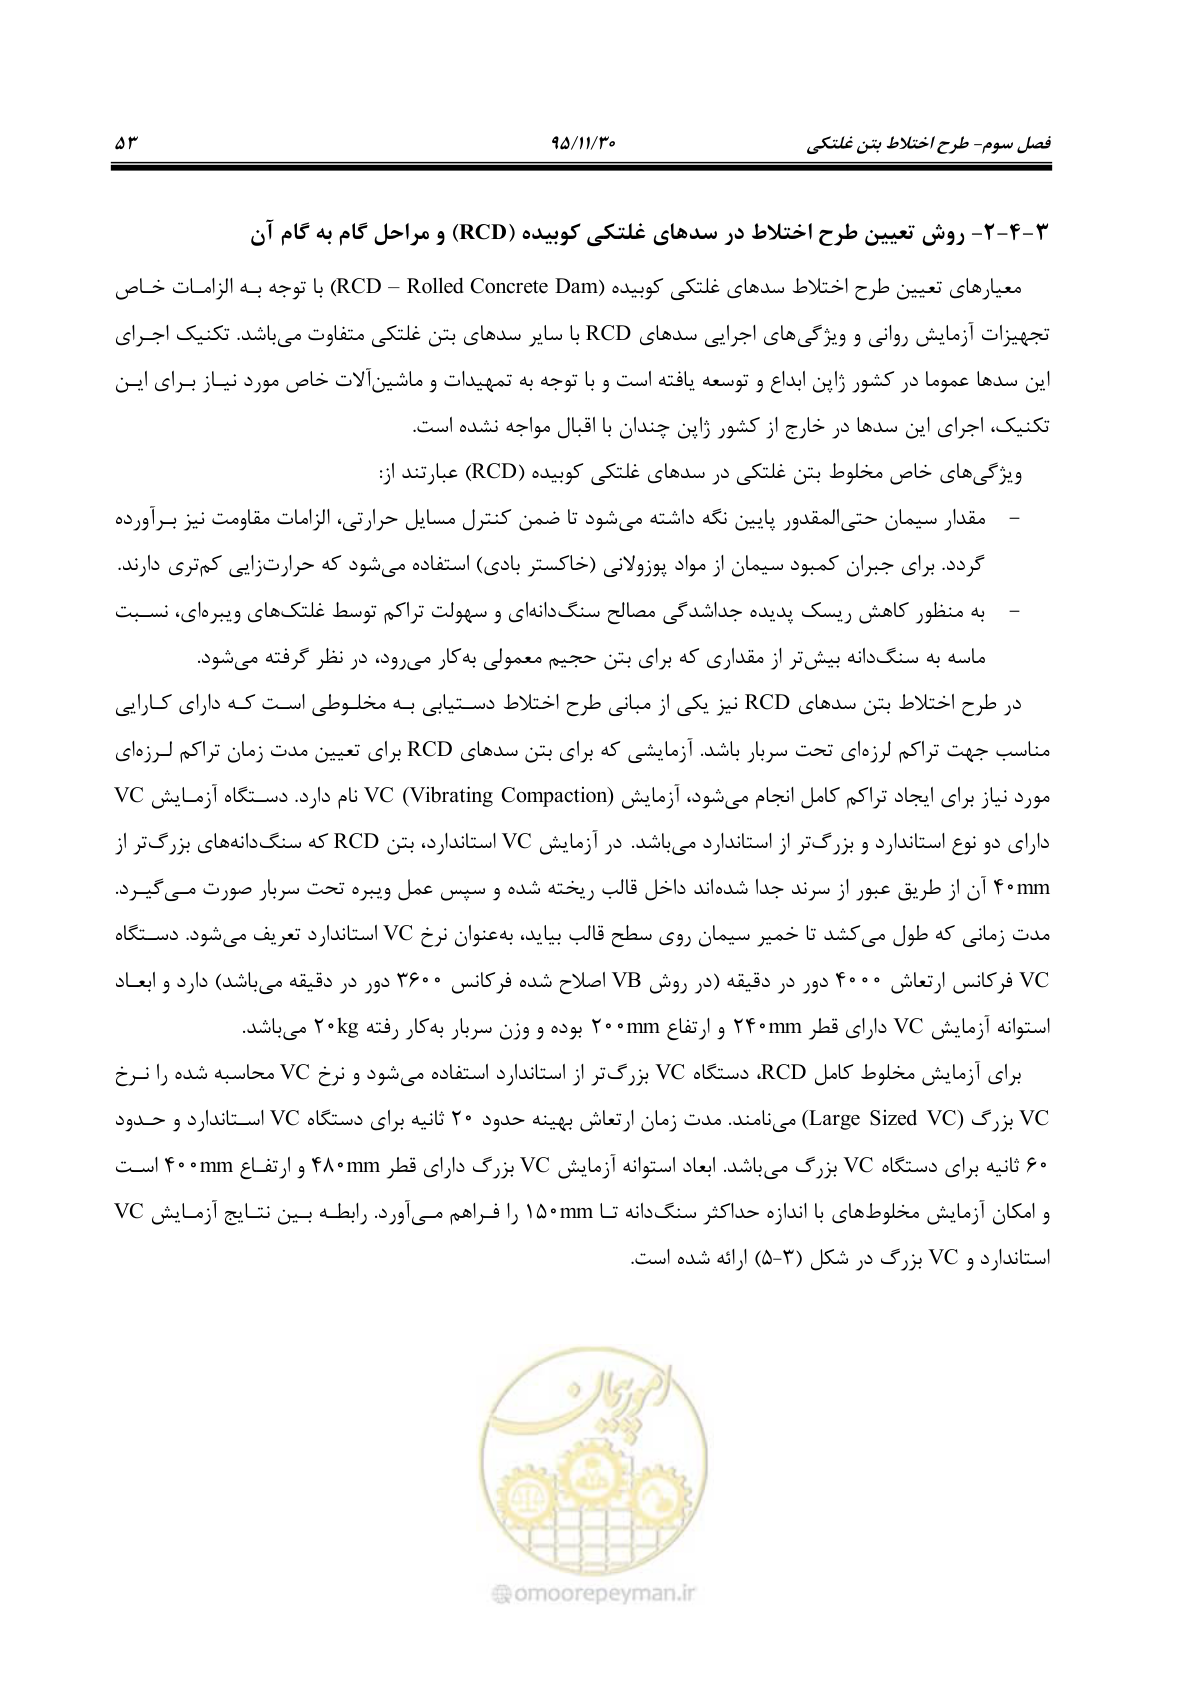 فصل سوم- طرح اختلاط بتن غلتکی ۹۵/۱۱/۳۰ ۵۳
۳-۴-۲- روش تعیین طرح اختلاط در سدهای غلتکی کوبیده (RCD) و مراحل گام به گام آن
معیارهای تعیین طرح اختلاط سدهای غلتکی کوبیده (RCD – Rolled Concrete Dam) با توجه به الزامات خاص
تجهیزات آزمایش روانی و ویژگی‌های اجرایی سدهای RCD با سایر سدهای بتن غلتکی متفاوت می‌باشد. تکنیک اجرای
این سدها عموما در کشور ژاپن ابداع و توسعه یافته است و با توجه به تمهیدات و ماشین‌آلات خاص مورد نیاز برای این
تکنیک، اجرای این سدها در خارج از کشور ژاپن چندان با اقبال مواجه نشده است.
ویژگی‌های خاص مخلوط بتن غلتکی در سدهای غلتکی کوبیده (RCD) عبارتند از:
– مقدار سیمان حتی‌المقدور پایین نگه داشته می‌شود تا ضمن کنترل مسایل حرارتی، الزامات مقاومت نیز برآورده
گردد. برای جبران کمبود سیمان از مواد پوزولانی (خاکستر بادی) استفاده می‌شود که حرارت‌زایی کم‌تری دارند.
– به منظور کاهش ریسک پدیده جداشدگی مصالح سنگ‌دانه‌ای و سهولت تراکم توسط غلتک‌های ویبره‌ای، نسبت
ماسه به سنگ‌دانه بیش‌تر از مقداری که برای بتن حجیم معمولی به‌کار می‌رود، در نظر گرفته می‌شود.
در طرح اختلاط بتن سدهای RCD نیز یکی از مبانی طرح اختلاط دستیابی به مخلوطی است که دارای کارایی
مناسب جهت تراکم لرزه‌ای تحت سربار باشد. آزمایشی که برای بتن سدهای RCD برای تعیین مدت زمان تراکم لرزه‌ای
مورد نیاز برای ایجاد تراکم کامل انجام می‌شود، آزمایش VC (Vibrating Compaction) نام دارد. دستگاه آزمایش VC
دارای دو نوع استاندارد و بزرگ‌تر از استاندارد می‌باشد. در آزمایش VC استاندارد، بتن RCD که سنگ‌دانه‌های بزرگ‌تر از
۴۰mm آن از طریق عبور از سرند جدا شده‌اند داخل قالب ریخته شده و سپس عمل ویبره تحت سربار صورت می‌گیرد.
مدت زمانی که طول می‌کشد تا خمیر سیمان روی سطح قالب بیاید، به‌عنوان نرخ VC استاندارد تعریف می‌شود. دستگاه
VC فرکانس ارتعاش ۴۰۰۰ دور در دقیقه (در روش VB اصلاح شده فرکانس ۳۶۰۰ دور در دقیقه می‌باشد) دارد و ابعاد
استوانه آزمایش VC دارای قطر ۲۴۰mm و ارتفاع ۲۰۰mm بوده و وزن سربار به‌کار رفته ۲۰kg می‌باشد.
برای آزمایش مخلوط کامل RCD، دستگاه VC بزرگ‌تر از استاندارد استفاده می‌شود و نرخ VC محاسبه شده را نرخ
VC بزرگ (Large Sized VC) می‌نامند. مدت زمان ارتعاش بهینه حدود ۲۰ ثانیه برای دستگاه VC استاندارد و حدود
۶۰ ثانیه برای دستگاه VC بزرگ می‌باشد. ابعاد استوانه آزمایش VC بزرگ دارای قطر ۴۸۰mm و ارتفاع ۴۰۰mm است
و امکان آزمایش مخلوط‌های با اندازه حداکثر سنگ‌دانه تا ۱۵۰mm را فراهم می‌آورد. رابطه بین نتایج آزمایش VC
استاندارد و VC بزرگ در شکل (۳-۵) ارائه شده است.
امور پیمان
omoorepeyman.ir